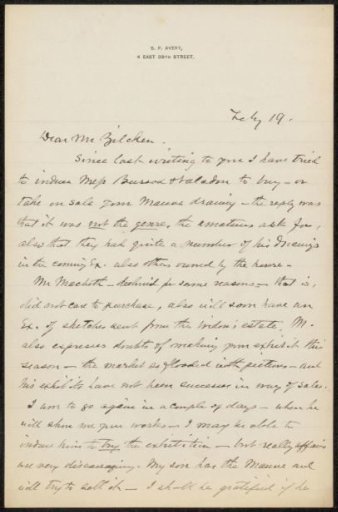 S. P. AVERY,
4 EAST 38TH STREET.
Feby 19.
Dear Mr Zilcken.
Since last writing to you I have tried
to induce Messrs Boussod & Valadon to buy — or
take on sale your Mauve drawing — the reply was
that it was not the genre, the amateurs ask for,
also that they had quite a number of his drawings
in the coming Ex. also others owned by the house —
Mr Macbeth — declined for same reasons — that is,
did not care to purchase, also will soon have an
Ex. of sketches sent from the widow's estate, M.
also expresses doubts of making your exhibit this
season — the market so flooded with pictures — and
his exhibits have not been successes in way of sales.
I am to go again in a couple of days — when he
will show me your works — I may be able to
induce him to try the exhibition — but really affairs
are very discouraging. My son has the Mauve and
will try to sell it — I shall be gratified if he